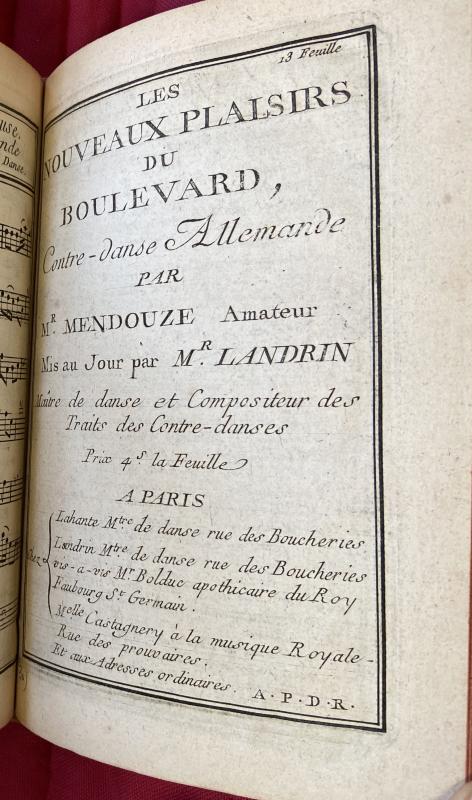 use.
nde
Danse.
13 Feuille
LES
NOUVEAUX PLAISIRS
DU
BOULEVARD,
Contre-danse Allemande
PAR
MR. MENDOUZE Amateur
Mis au Jour par MR. LANDRIN
Maitre de danse et Compositeur des
Traits des Contre-danses
Prix 4s. la Feuille
A PARIS
Lahante Mtre de danse rue des Boucheries
Landrin Mtre de danse rue des Boucheries
Chez
vis-a-vis Mr Bolduc apothicaire du Roy
Faubourg St Germain.
Melle Castagnery à la musique Royale-
Rue des prouvaires.
Et aux Adresses ordinaires. A.P.D.R.